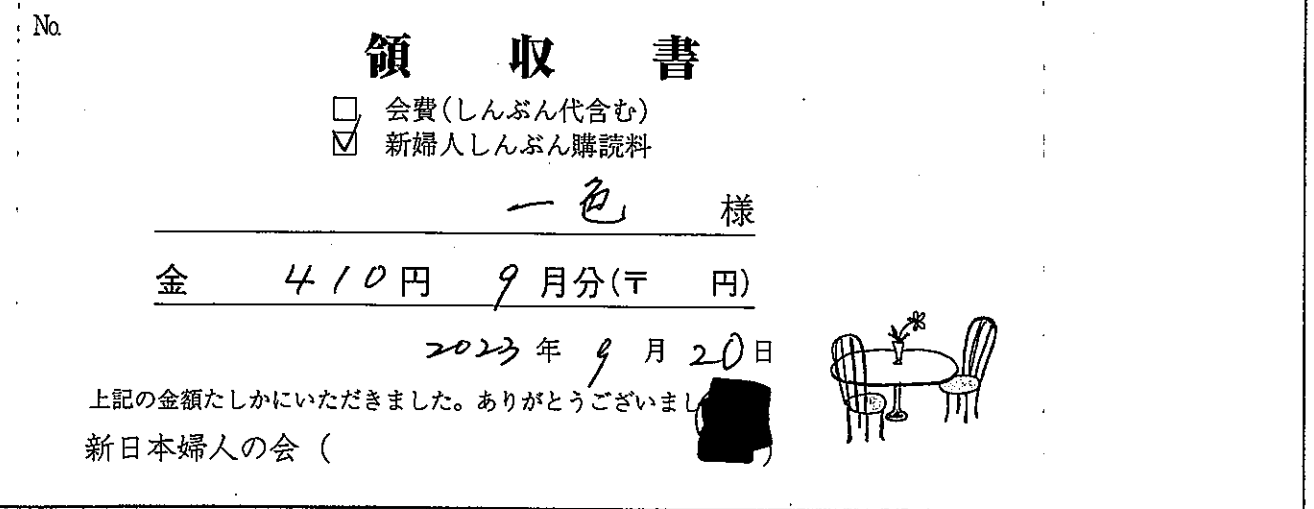 No.
領収書
□ 会費(しんぶん代含む)
☑ 新婦人しんぶん購読料
一色 様
金 410円 9月分(〒 円)
2023年9月20日
上記の金額たしかにいただきました。ありがとうございまし
新日本婦人の会 ( )